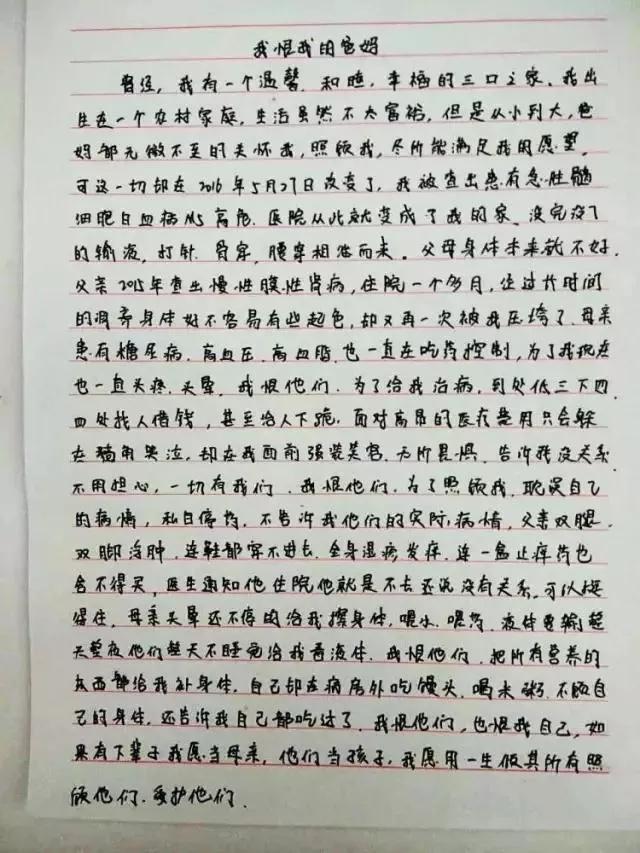 我恨我的爸妈
曾经，我有一个温馨、和睦、幸福的三口之家。我出
生在一个农村家庭，生活虽然不太富裕，但是从小到大，爸
妈都无微不至的关怀我，照顾我，尽所能满足我的愿望。
可这一切却在2016年5月27日改变了，我被查出患有急性髓
细胞白血病M5高危.医院从此就变成了我的家、没完没了
的输液，打针.骨穿，腰穿相继而来。父母身体本来就不好，
父亲2015年查出慢性膜性肾病，住院一个多月，经过长时间
的调养身体好不容易有些起色，却又再一次被我压垮了.母亲
患有糖尿病.高血压.高血脂.也一直在吃药控制，为了我现在
也一直头疼.头晕.我恨他们.为了给我治病，到处低三下四
四处找人借钱，甚至给人下跪.面对高昂的医疗费用只会躲
在墙角哭泣，却在我面前强装笑容.无所畏惧.告诉我没关系
不用担心，一切有我们.我恨他们.为了照顾我.耽误自己
的病情，私自停药.不告诉我他们的实际病情，父亲双腿.
双脚浮肿，连鞋都穿不进去.全身湿疹发痒.连一盒止痒药也
舍不得买，医生通知他住院他就是不去还说没有关系.可以挺
得住，母亲头晕还不停的给我擦身体，喂水.喂药.液体要输整
天整夜他们整天不睡觉给我看液体.我恨他们.把所有营养的
东西都给我补身体，自己却在病房外吃馒头.喝米粥.不顾自
己的身体，还告诉我自己都吃过了.我恨他们，也恨我自己，如
果有下辈子我愿当母亲，他们当孩子.我愿用一生做其所有照
顾他们.爱护他们.